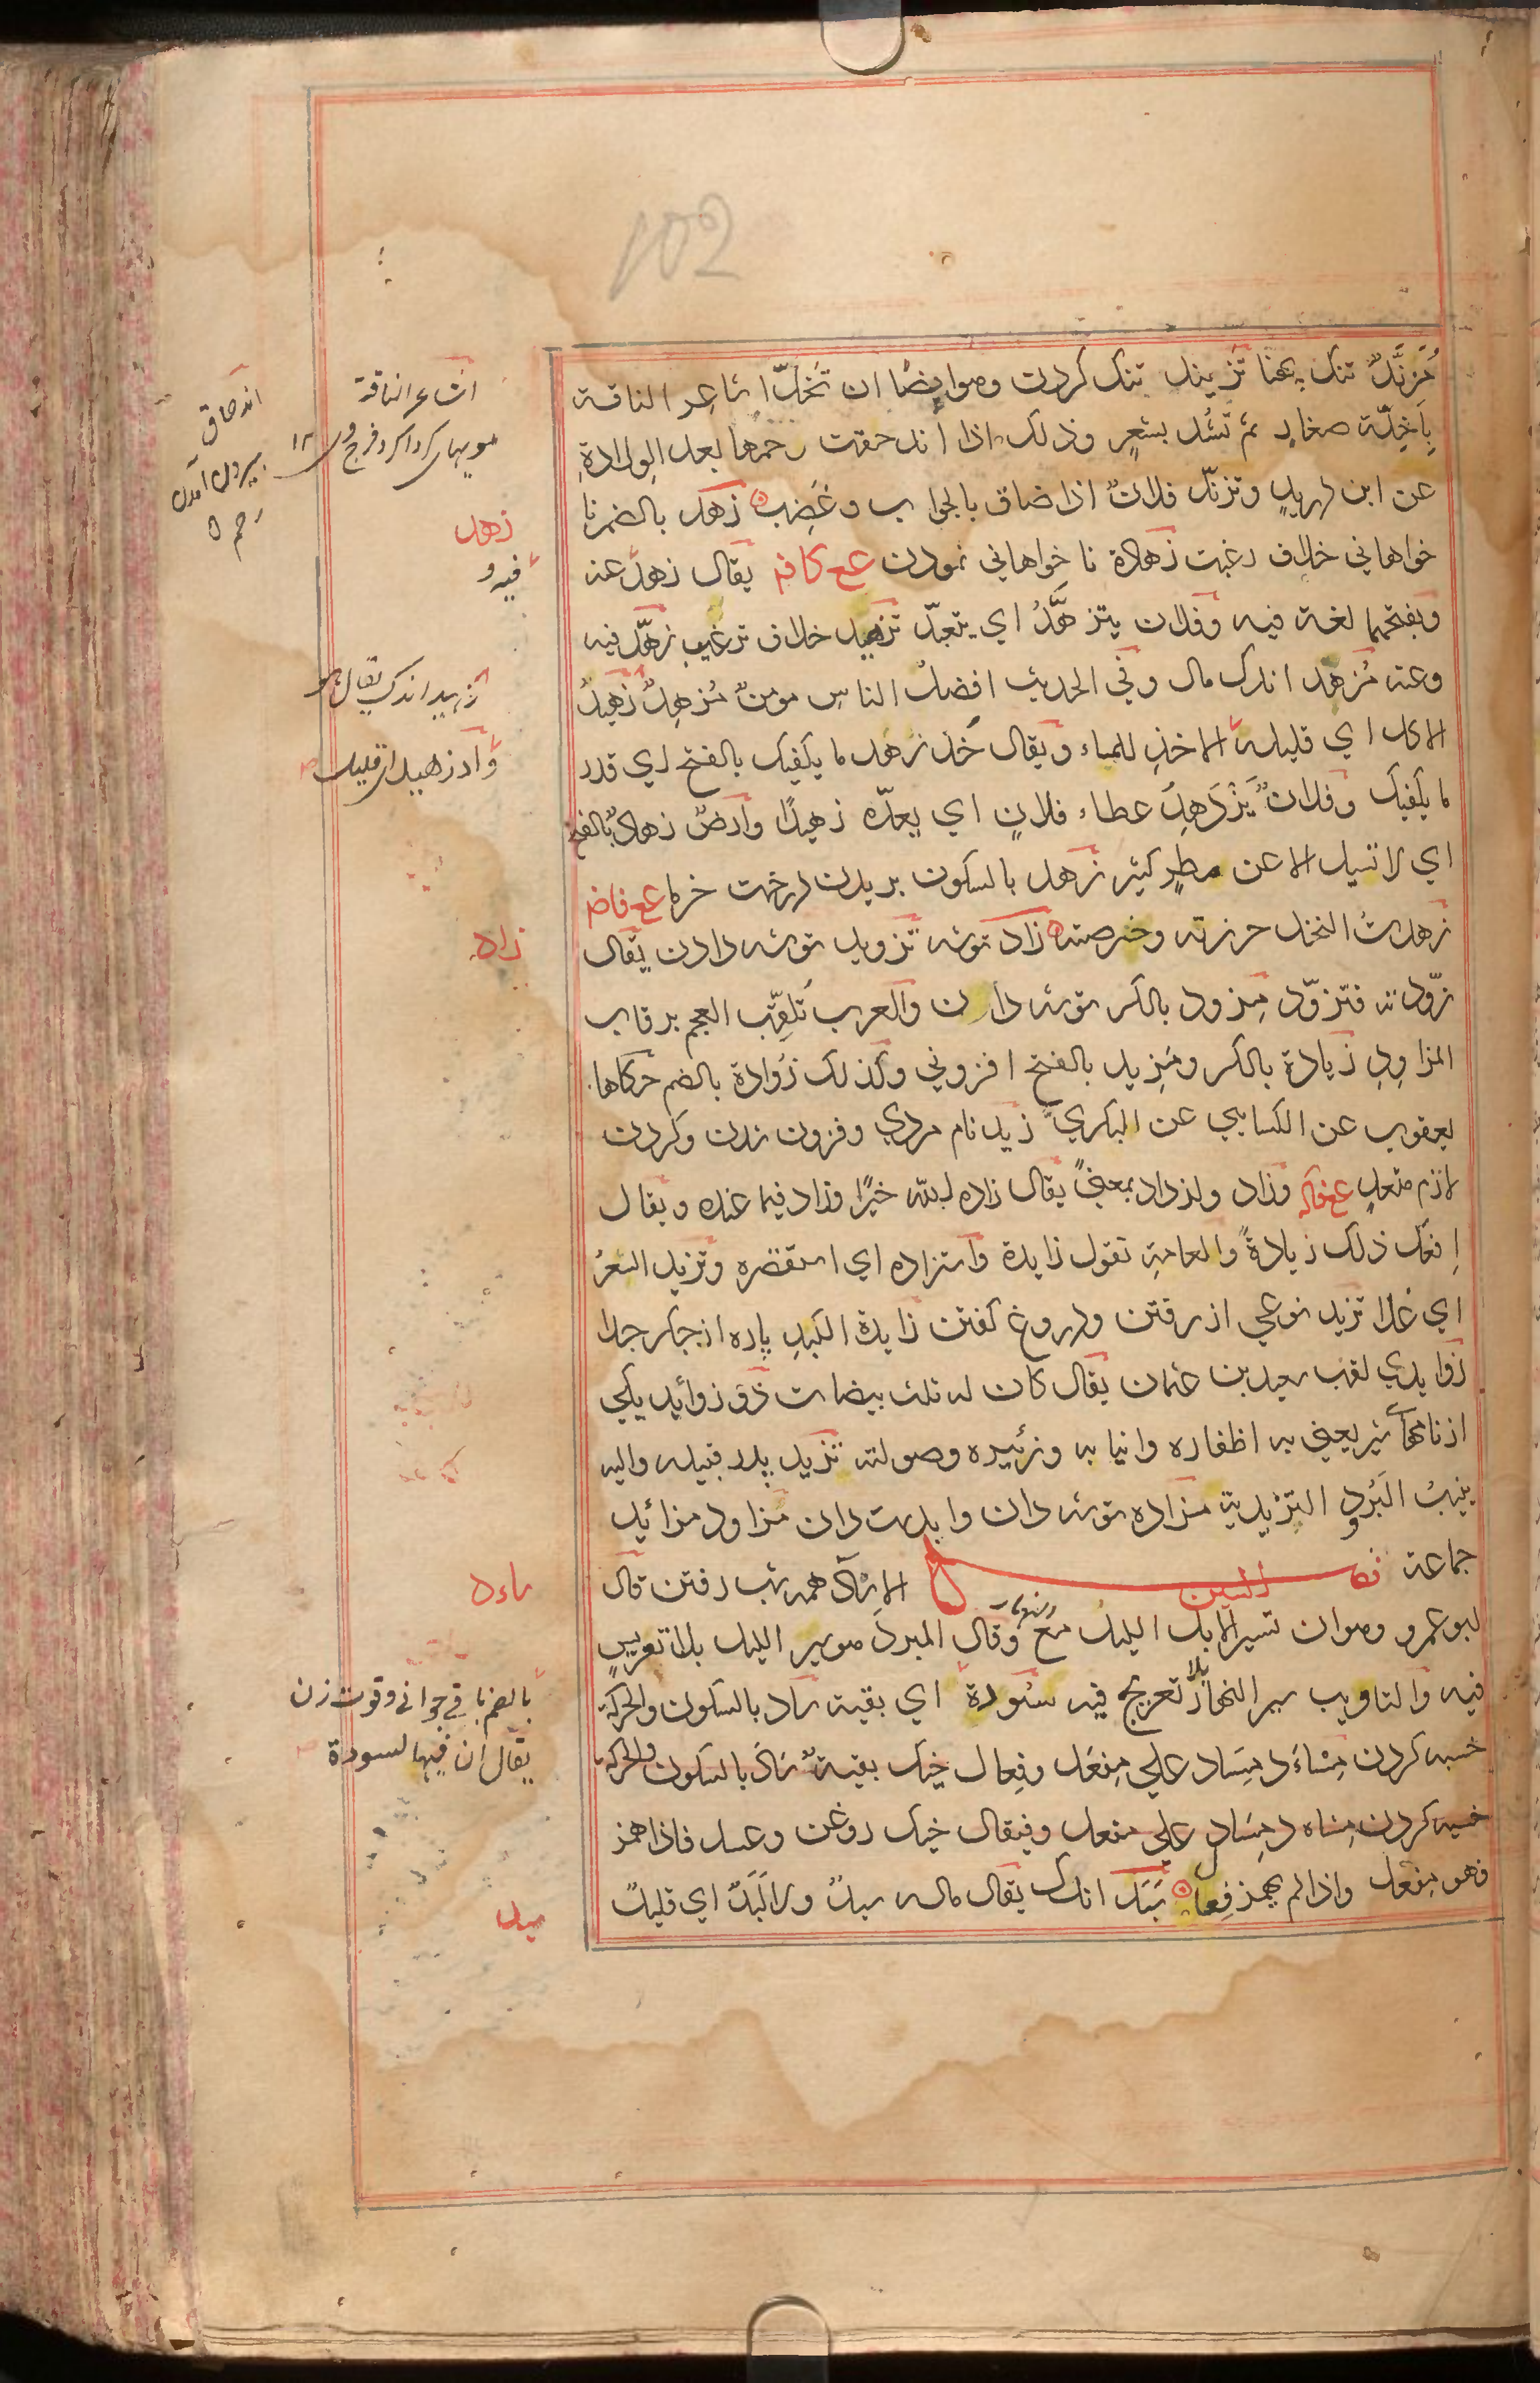 102
مُزَنَّدٌ تنک بهعنا تزنید تنک کردن وهو ایضا ان تُخَلَّ اشاعر الناقة
بِاَخِلّة صغارٍ ثم تُشد بشعرٍ وذلک اذا اندحقت رحمها بعد الولادةِ
عن ابن دریدٍ وتزنّد فلانٌ اذا ضاق بالجواب وغَضِب زهد بالضم نا
خواهانی خلاف رغبت زهادة نا خواهانی نمودن عع کافم یقال زهد عنه
وبفتحهما لغة فیه وفلان یتزهّدُ ای یتعبّد تزهید خلاف ترغیب زهّد فیه
وعنه مُزهد اندک مال وفی الحدیث افضلُ الناسِ مومنٌ مُزهِدٌ زهیدُ
الاکل ای قلیله الاخذِ للماء ویقال خُذ زهد ما یکفیک بالفتح ای قدر
ما یکفیک وفلانٌ یَزْدَهِدُ عطاء فلانٍ ای یعدّه زهیدًا وارضٌ زهادٌ بالفتح
ای لا تسیل الا عن مطرٍ کثیرٍ زهد بالسکون بریدن درخت خرما عع فاضم
زهدتُ النخل حرزته وخرصته زاد توشه تزوید توشه دادن یقال
زوّدته فتزوّد مِزود بالکسر توشه دان والعرب تُلقّب العجم برقاب
المزاودِ زیادة بالکسر ومَزِید بالفتح افزونی وکذلک زُوادة بالضم حکاها
یعقوب عن الکسایی عن البکری زید نام مردی وفزون شدن وکردن
لازم متعدٍ عع فاکم وزاد وازداد بمعنیً یقال زاده الله خیرًا وزاد فیما عنده ویقال
اِفعل ذلک زیادةً والعامة تقول زایدة واستزاده ای استقصره وتزید السعرُ
ای غلا تزید نوعی از رفتن ودروغ گفتن زایدة الکبدِ پاره از جگر جدا
زوایدی لقب سعید بن عثمان یقال کان له ثلث بیضات ذو زوائد یکی
از نامهای شیر یعنی به اظفاره وانیابه وزئیره وصولته تزید پدر قبیله والیه
ینسبُ البُرود التزیدیة مزاده توشه دان وابدست دان مَزاود مزائد
جماعة فصل السین الاسآد همه شب رفتن قال
ابو عمرو وهو ان تسیر الابل اللیل مع النهار وقال المبرد هو سیر اللیل بلا تعریسٍ
فیه والتاویب سیر النهار لا تعریج فیه سُؤدة ای بقیة سأد بالسکون والحرکة
خسبه کردن مِسْاَد مِسَاد علی مِفعَل وفِعال خیک بقیةٌ سَأَد بالسکون والحرکة
خسبه کردن مِسْاد مِسَاد علی مفعل وفیقال خیک روغن وعسل فاذا همز
فهو مِفعل واذا لم یهمز فِعال سَبَد اندک یقال ماله سبدٌ ولا لَبَدٌ ای قلیلٌ
اشاعر الناقة
مویهای کرداکرد فرج وی ۱۲
اندحاق
بیرون آمدن
رحم
زهد
فیه و
تزهید اندک یقال هو
واد زهید ای قلیل
زاد
سأد
بالضم باقی جوانی وقوت زن
یقال ان فیها لسودة
سبد